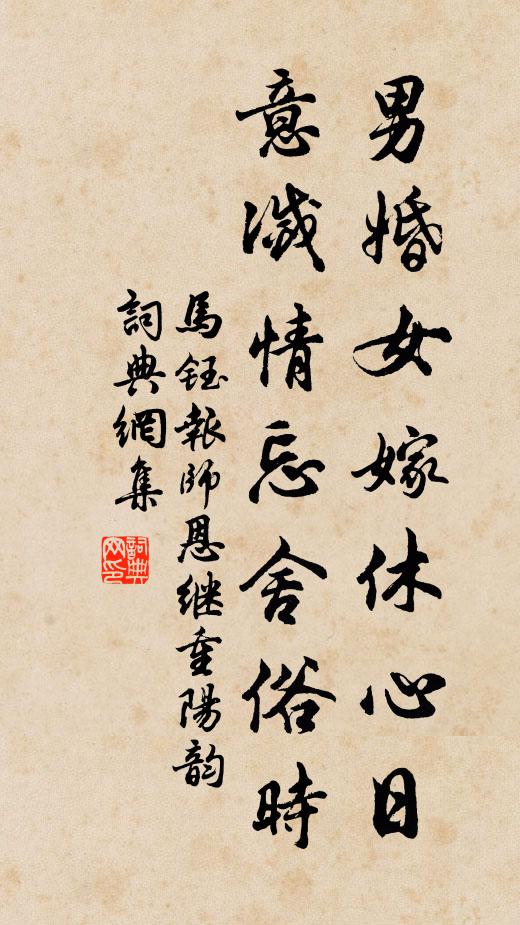 男婚女嫁休心日
意滅情忘舍俗時
馬鈺報師恩继重陽韵
詞典網集
詞典網印